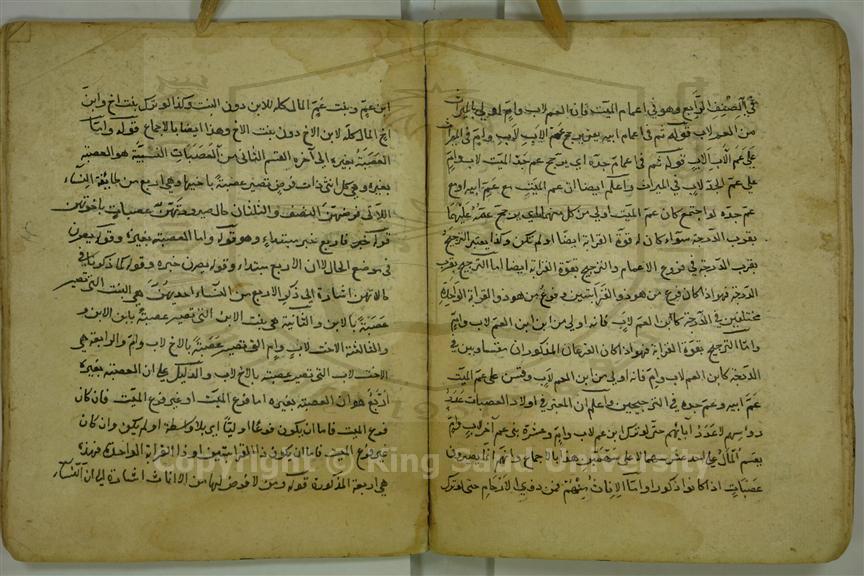 في الصنف الرابع وهو في اعمام الميت فان العم لاب وام اولى بالميراث
من العم لاب قوله ثم في اعمام ابيه يعني يرجح عم الاب لاب وام في الميراث
على عم الاب لاب قوله ثم في اعمام جده اي يرجح عم جد الميت لاب وام
على عم الجد لاب في الميراث واعلم ايضا ان عم الميت مع عم ابيه او مع
عم جده لو اجتمع كان عم الميت اولى من كل منهما اي يرجح عمه عليهما
بقرب الدرجة سواء كان له قوة القرابة ايضا او لم يكن وكذا يعتبر الترجيح
بقرب الدرجة في فروع الاعمام والترجيح بقوة القرابة ايضا اما الترجيح بقرب
الدرجة فهو اذا كان فرع من هو ذو القرابتين وفرع من هو ذو القرابة الواحدة
مختلفين في الدرجة كابن العم لاب فانه اولى من ابن ابن العم لاب وام
واما الترجيح بقوة القرابة فهو اذا كان الفرعان المذكوران متساويين في
الدرجة كابن العم لاب وام فانه اولى من ابن العم لاب وقس على عم الميت
عم ابيه وعم جده في الترجيحين واعلم ان المعتبر في اولاد العصبات عدد
رؤسهم لا عدد آبائهم حتى لو ترك ابن عم لاب وام وعشرة بني عم آخر لاب وام
يقسم المال على احد عشر سهما لا على سهمين وهذا بالاجماع ثم انما يصيرون
عصبات اذا كانوا ذكورا واما الاناث منهم فمن ذوي الارحام حتى لو ترك
ابن عم وبنت عم المال كله للابن دون البنت وكذا لو ترك بنت اخ وابن
اخ المال كله لابن الاخ دون بنت الاخ وهذا ايضا بالاجماع قوله واما
العصبة بغيره الى آخره القسم الثاني من العصبات النسبية هو العصبة
بغيره وهي كل انثى ذات فرض تصير عصبة باخيها وهي اربع من طائفة النساء
اللاتي فرضهن النصف والثلثان حال صيرورتهن عصبات باخوتهن
قوله خبر فاربع خبر مبتداء وهو قوله واما العصبة بغيره وقوله يصرن
في موضع الحال لان الاربع مبتداء وقوله يصرن خبره وقوله كما ذكرنا في
حالاتهن اشارة الى ذكر الاربع من النساء احديهن هي البنت التي تصير
عصبة بالابن والثانية هي بنت الابن التي تصير عصبة بابن الابن و
والثالثة الاخت لاب وام التي تصير عصبة بالاخ لاب وام والرابعة هي
الاخت لاب التي تصير عصبة بالاخ لاب والدليل على ان العصبة بغيره
اربع هو ان العصبة بغيره اما فرع الميت او غير فرع الميت فان كان
فرع الميت فاما ان يكون فرعا اوليا اي بلا واسطة او لم يكن وان كان
غير فرع الميت فاما ان يكون ذا القرابتين او ذا القرابة الواحدة فهذه
هي اربعة المذكورة قوله ومن لا فرض لها من الاناث اشارة الى ان النساء
Copyright © King Saud University